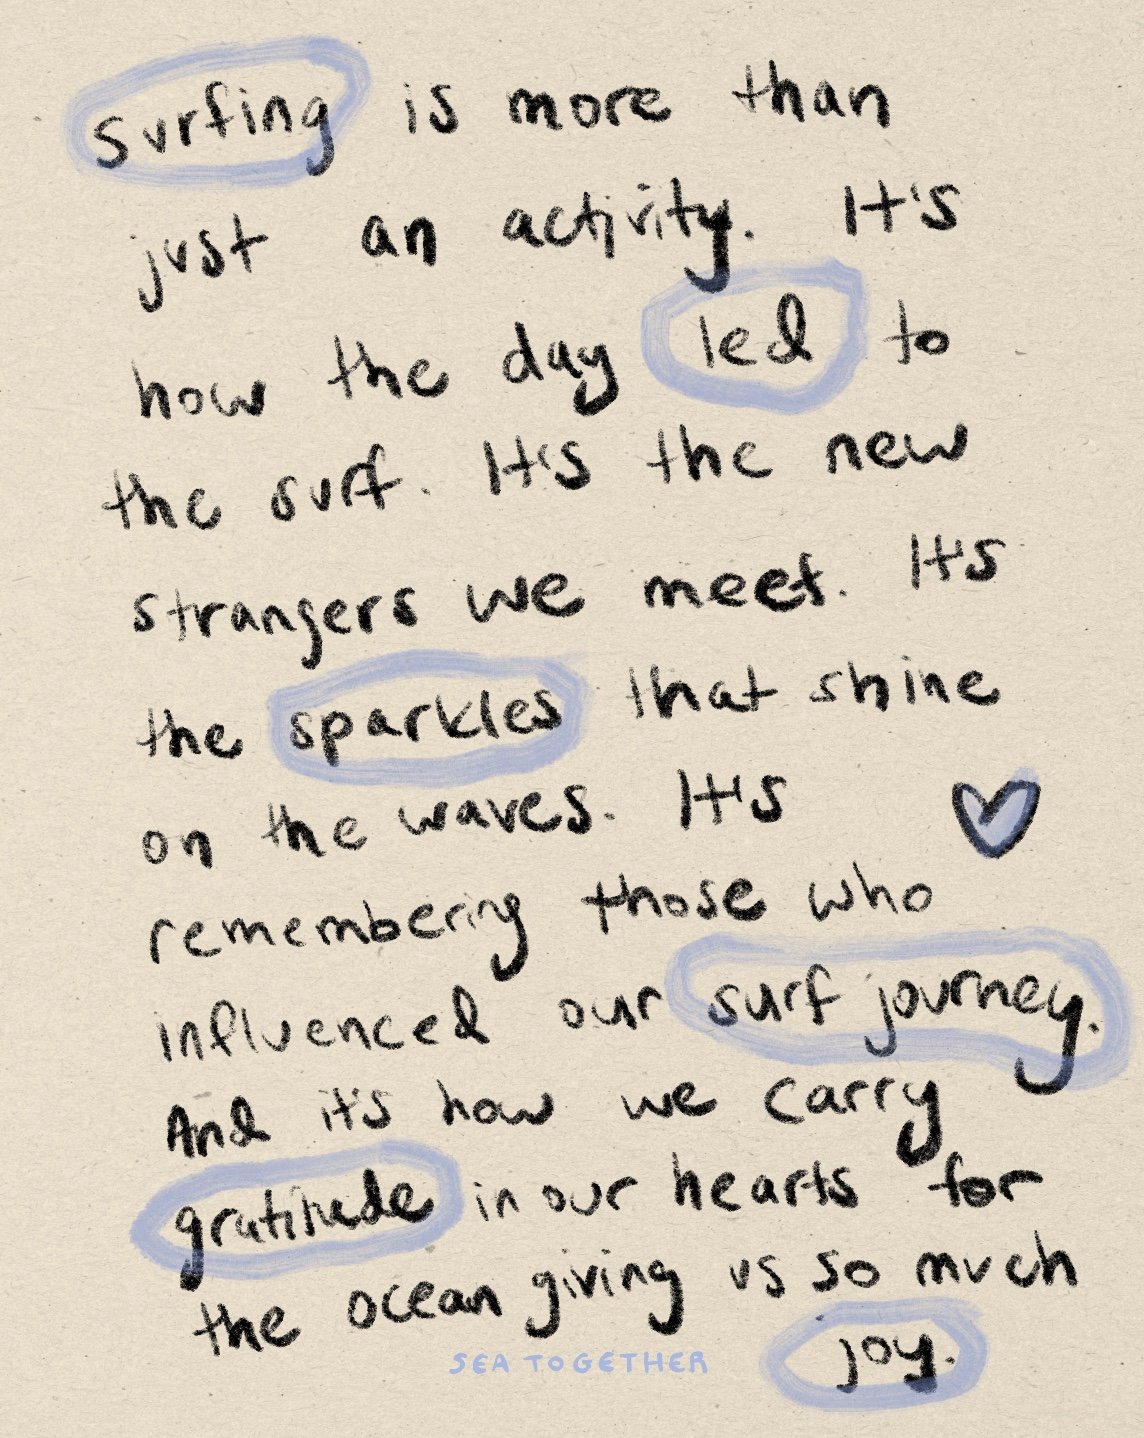 surfing is more than
just an activity. It's
how the day led to
the surf. It's the new
strangers we meet. It's
the sparkles that shine
on the waves. It's
remembering those who
influenced our surf journey.
And it's how we carry
gratitude in our hearts for
the ocean giving us so much
joy.
SEA TOGETHER